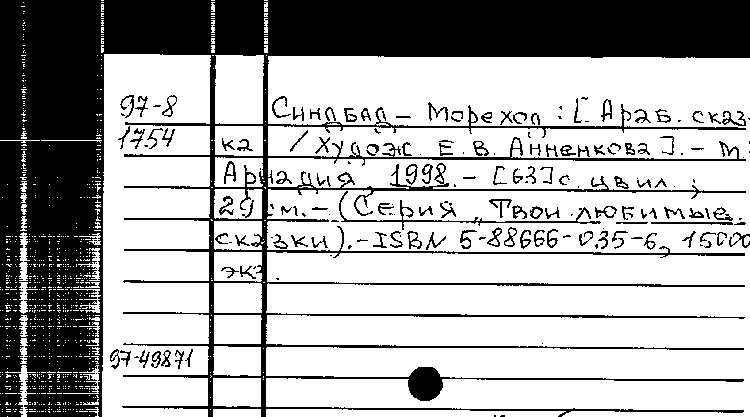 97-8 Синдбад - Мореход : [ Араб. сказ-
1754 ка / Худож. Е. В. Анненкова ]. - М.:
Ариадия, 1998. - [63] с. цв ил. ;
29 см. - (Серия „Твои любимые
сказки). - ISBN 5-88666-035-6, 15000
экз.
97-49871